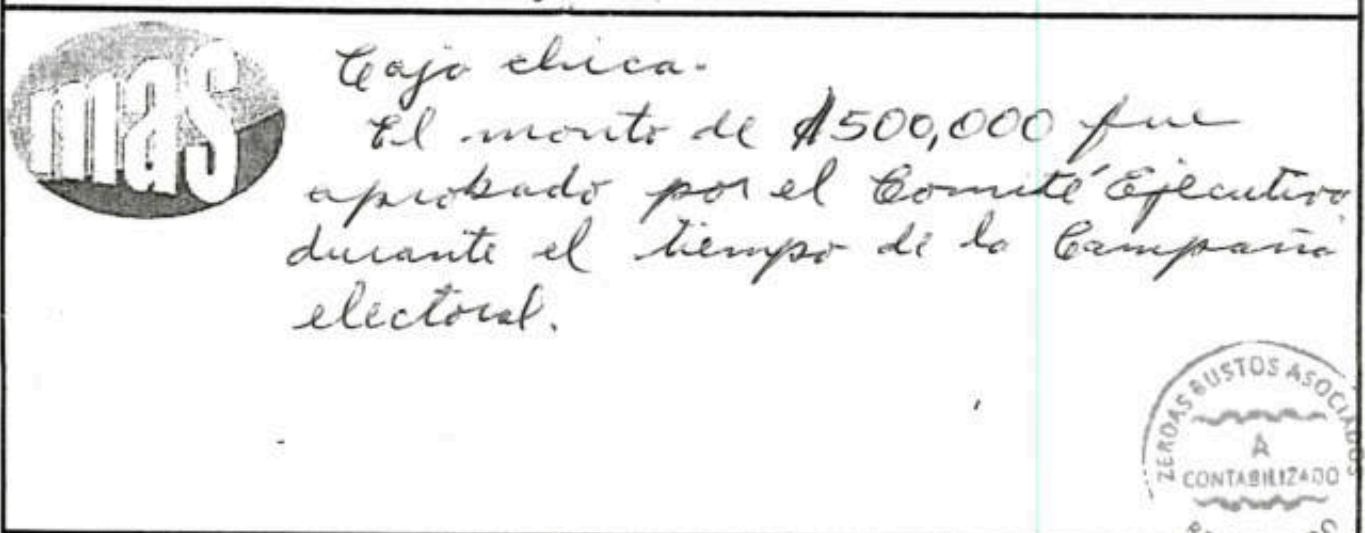 mas
Caja chica.
El monto de ₡500,000 fue
aprobado por el Comité Ejecutivo
durante el tiempo de la Campaña
electoral.
ZERDAS BUSTOS ASOCIADOS
A
CONTABILIZADO